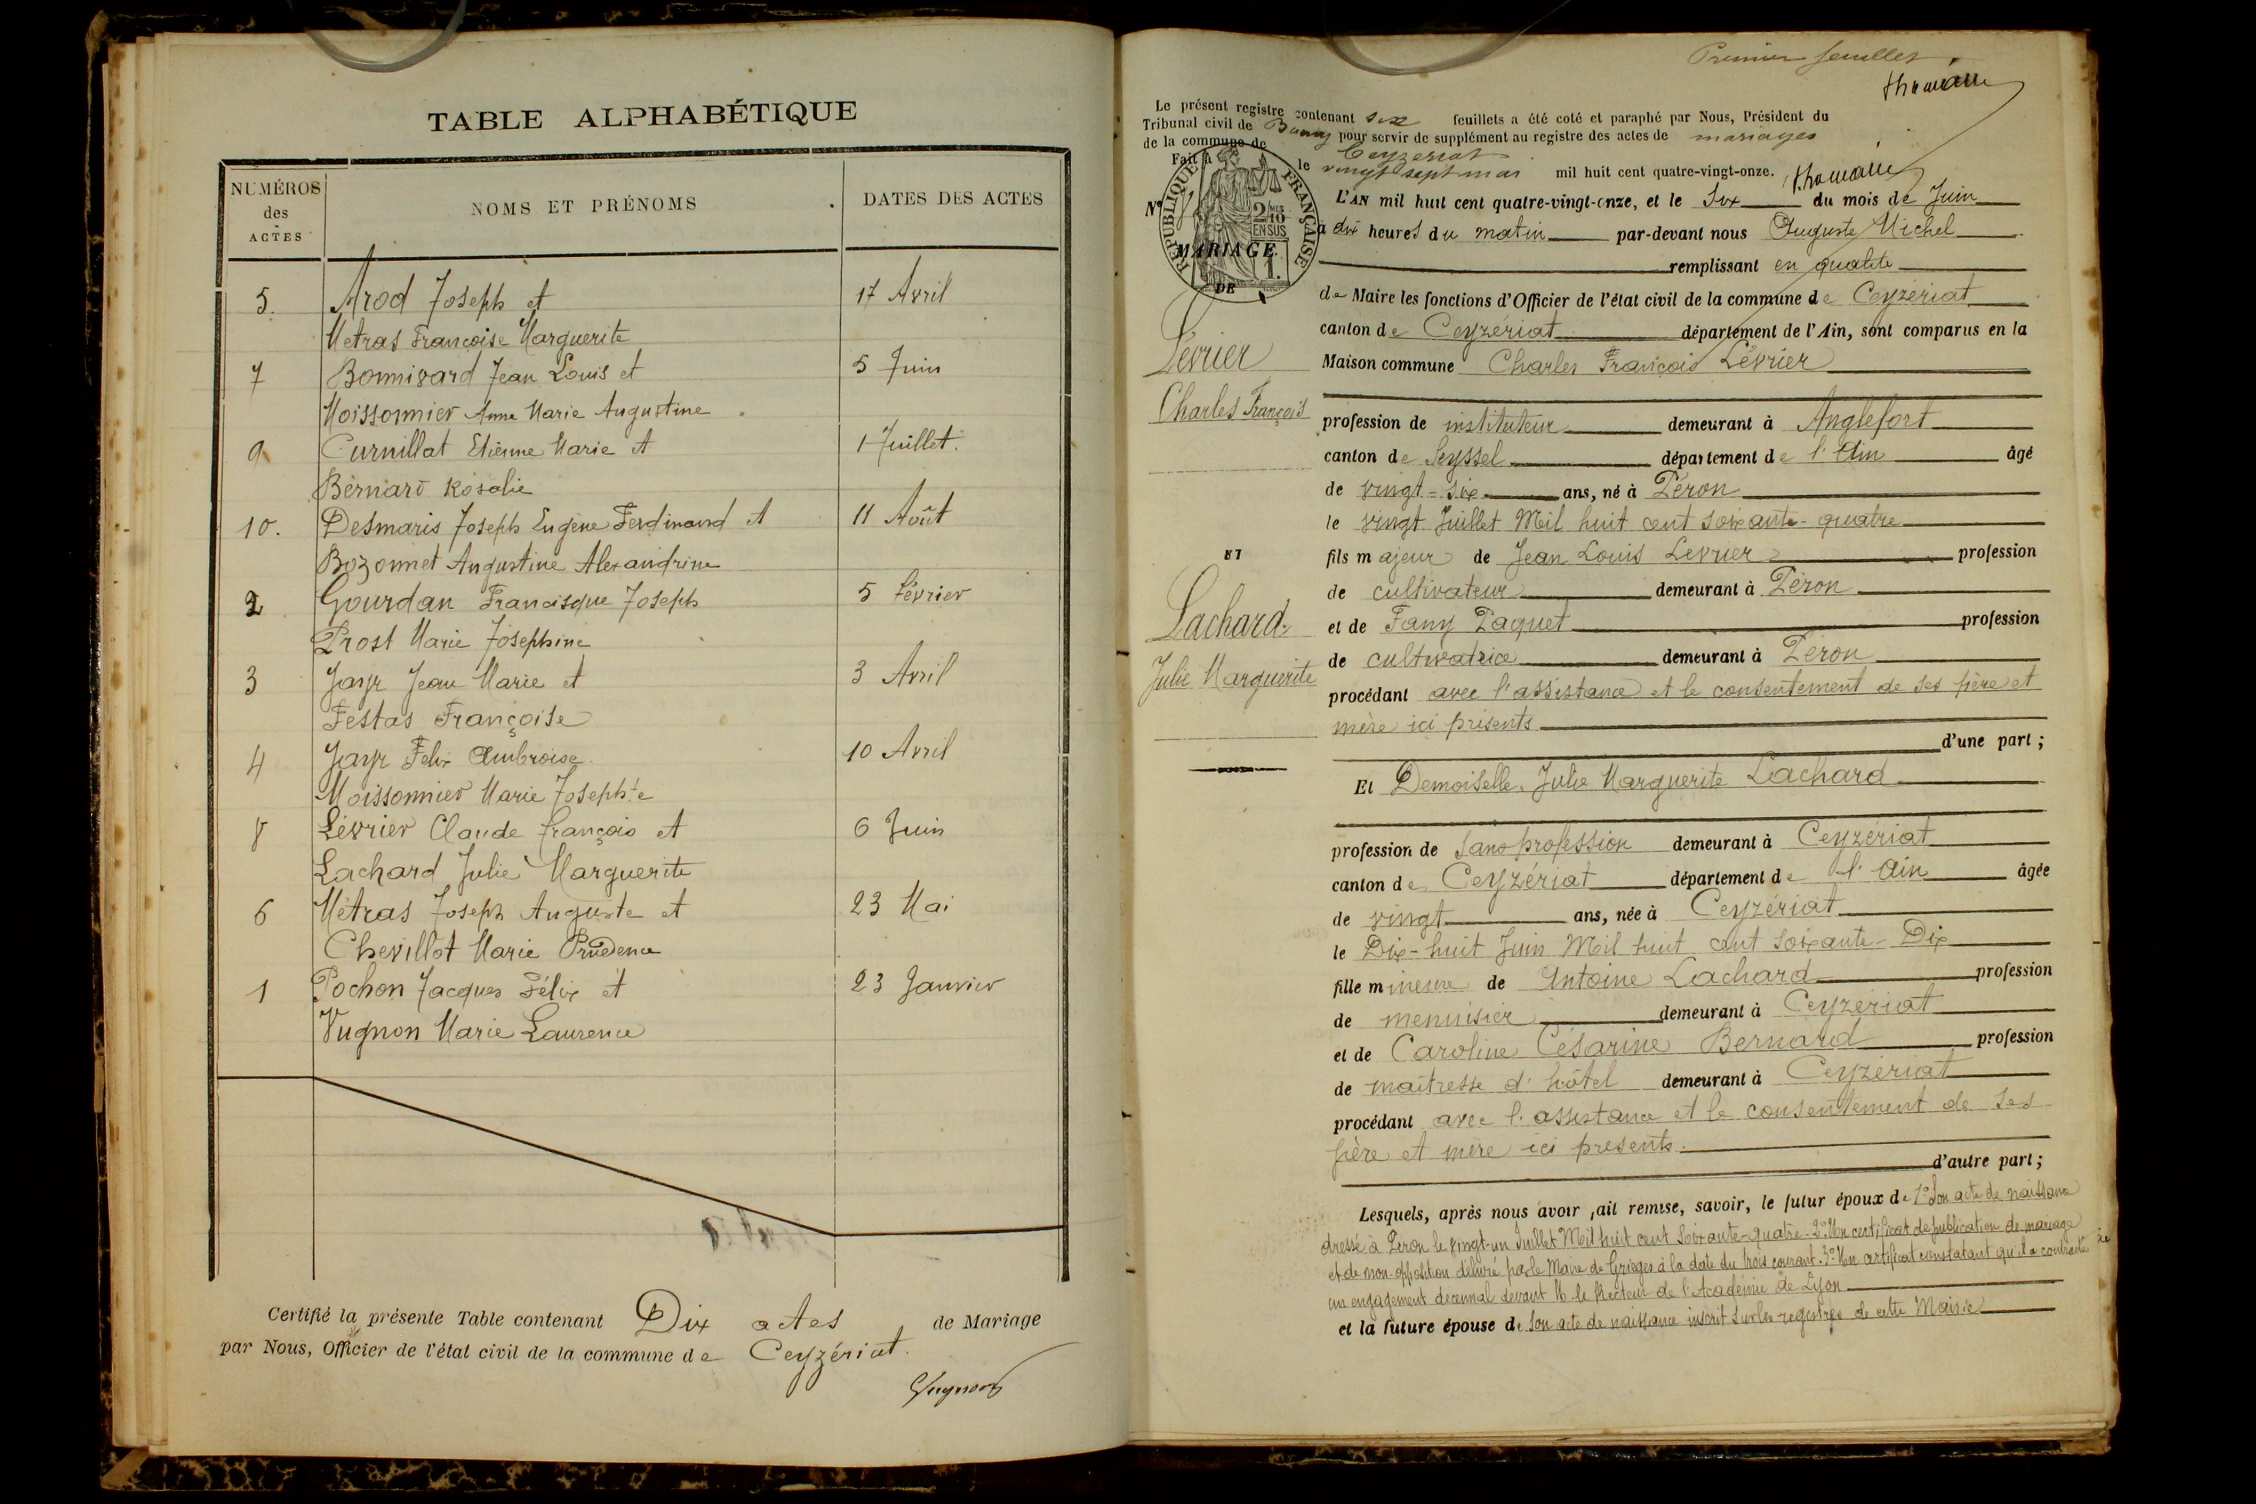 TABLE ALPHABÉTIQUE
NUMÉROS des ACTES
NOMS ET PRÉNOMS
DATES DES ACTES
5. Arod Joseph et 17 Avril
Metras Françoise Marguerite
7 Bonnivard Jean Louis et 5 Juin
Moissonnier Anne Marie Augustine
9 Curnillat Etienne Marie et 1 Juillet.
Bernard Rosalie
10. Desmaris Joseph Eugène Ferdinand et 11 Août
Bozonnet Augustine Alexandrine
2 Gourdan Francisque Joseph 5 Février
Prost Marie Joséphine
3 Jayr Jean Marie et 3 Avril
Festas Françoise
4 Jayr Felix Ambroise 10 Avril
Moissonnier Marie Josephte
8 Lévrier Claude françois et 6 Juin
Lachard Julie Marguerite
6 Métras Joseph Auguste et 23 Mai
Chevillot Marie Prudence
1 Pochon Jacques Félix et 23 Janvier
Vugnon Marie Laurence
Certifié la présente Table contenant Dix actes de Mariage
par Nous, Officier de l'état civil de la commune de Ceyzériat.
Premier feuillet
Le présent registre contenant six feuillets a été coté et paraphé par Nous, Président du
Tribunal civil de Bourg pour servir de supplément au registre des actes de mariages
de la commune de Ceyzeriat
Fait à le vingt sept mai mil huit cent quatre-vingt-onze.
RÉPUBLIQUE FRANÇAISE
2/10 EN SUS
1.
N° 8
MARIAGE
DE
Lévrier
Charles François
ET
Lachard
Julie Marguerite
L'AN mil huit cent quatre-vingt-onze, et le Six du mois de Juin
à dix heures du matin par-devant nous Auguste Michel
remplissant en qualité
de Maire les fonctions d'Officier de l'état civil de la commune de Ceyzériat
canton de Ceyzériat département de l'Ain, sont comparus en la
Maison commune Charles François Lévrier
profession de instituteur demeurant à Anglefort
canton de Seyssel département de l'Ain âgé
de vingt=six ans, né à Péron
le vingt Juillet Mil huit cent soixante-quatre
fils majeur de Jean Louis Levrier profession
de cultivateur demeurant à Péron
et de Fany Paquet profession
de cultivatrice demeurant à Péron
procédant avec l'assistance et le consentement de ses père et
mère ici présents
d'une part;
Et Demoiselle Julie Marguerite Lachard
profession de Sans profession demeurant à Ceyzériat
canton de Ceyzériat département de l'Ain âgée
de vingt ans, née à Ceyzériat
le Dix-huit Juin Mil huit cent soixante-Dix
fille mineure de Antoine Lachard profession
de menuisier demeurant à Ceyzeriat
et de Caroline Césarine Bernard profession
de maîtresse d'hôtel demeurant à Ceyzériat
procédant avec l'assistance et le consentement de ses
père et mère ici présents.
d'autre part;
Lesquels, après nous avoir fait remise, savoir, le futur époux de 1° Son acte de naissance
dressé à Péron le vingt-un Juillet Mil huit cent Soixante-quatre. 2° Un certificat de publication de mariage
et de non opposition délivré par le Maire de Grièges à la date du trois courant. 3° Un certificat constatant qu'il a contracté
un engagement décennal devant M le Recteur de l'Académie de Lyon
et la future épouse de Son acte de naissance inscrit sur les registres de cette Mairie